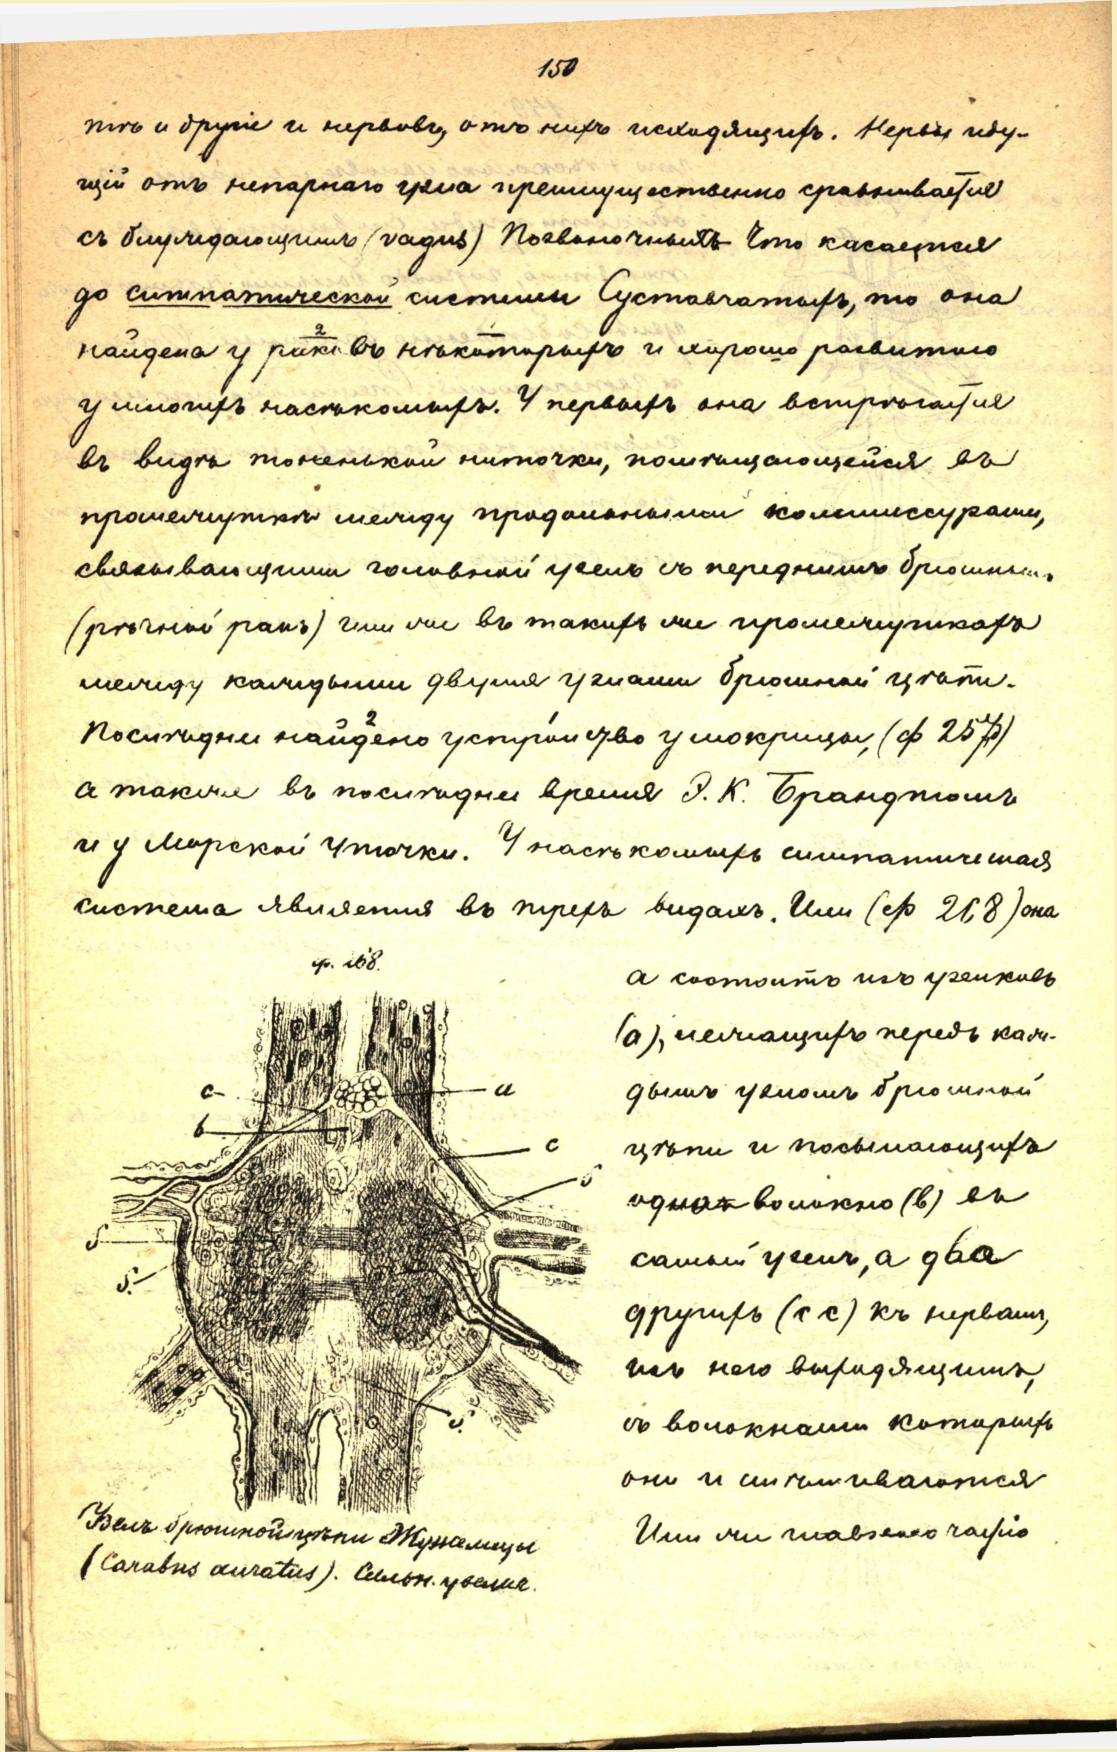 150
тъ и другіе и нервовъ, отъ нихъ исходящихъ. Нервы иду-
щій отъ непарнаго узла преимущественно сравнивается
съ блуждающимъ (vagus) Позвоночныхъ Что касается
до симпатической системы Суставчатыхъ, то она
найдена у рака въ нѣкоторыхъ и хорошо развитою
у многихъ насѣкомыхъ. У первыхъ она встрѣчается
въ видѣ тоненькой ниточки, помѣщающейся въ
промежуткѣ между продольными коммиссурами,
связывающими головной узелъ съ переднимъ брюшнымъ
(рѣчной ракъ) или же въ такихъ же промежуткахъ
между каждыми двумя узлами брюшной цѣпи.
Послѣднее найдено устройство у мокрицы, (ф 257)
а также въ послѣднее время Э. К. Брандтомъ
и у Морской Уточки. У насѣкомыхъ симпатическая
система является въ трехъ видахъ. Или (ф 268) она
ф. 268.
а состоитъ изъ узелковъ
(а), лежащихъ передъ каж-
дымъ узломъ брюшной
цѣпи и посылающихъ
одно волокно (b) въ
самый узелъ, а два
другихъ (с с) къ нервамъ,
изъ него выходящимъ,
съ волокнами которыхъ
они и смѣшиваются
Или же главною частію
c
a
b
c
s
s
s'
s'
Узелъ брюшной цѣпи Жужелицы
(Carabus auratus). Сильн. увелич.